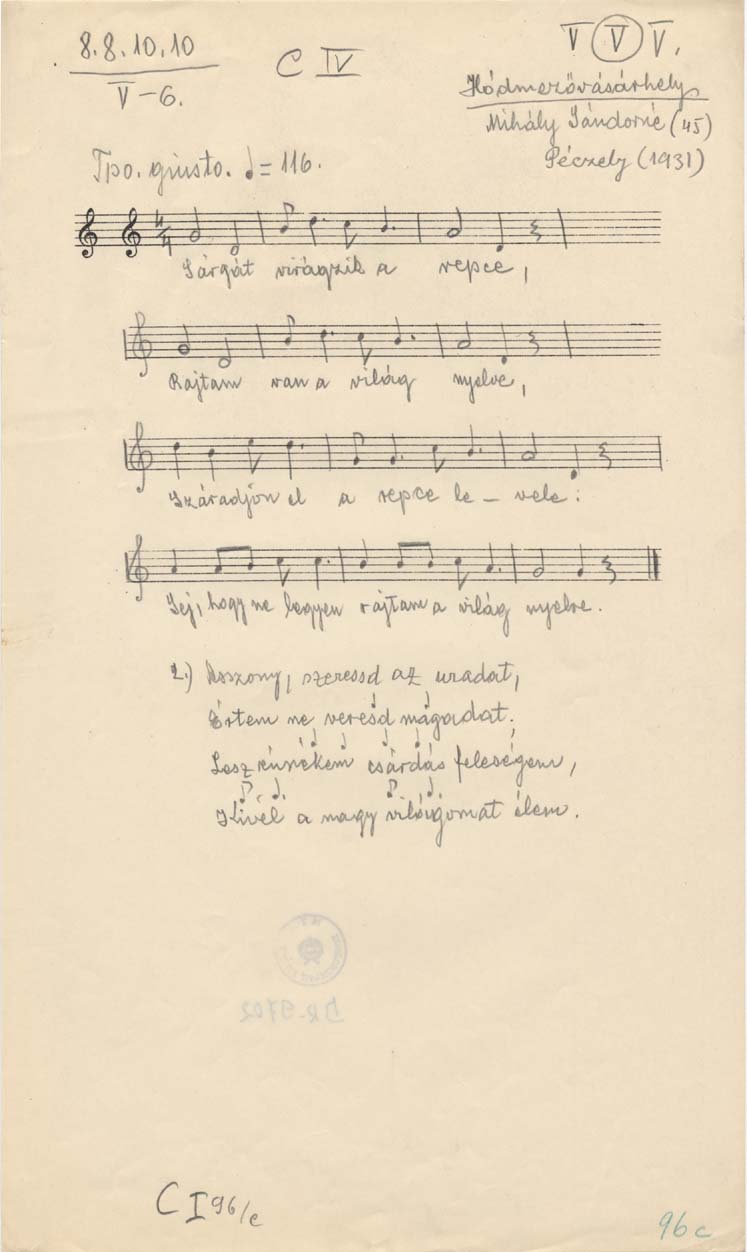 8.8.10.10
V-6.
C IV
V V V.
Hódmezővásárhely
Mihály Sándorné (45)
Péczely (1931)
Tpo. giusto. ♩= 116.
Sárgát virágzik a repce,
Rajtam van a világ nyelve,
Száradjon el a repce le - vele:
Jej, hogy ne legyen rajtam a világ nyelve.
2.) Asszony, szeressd az uradat,
Értem ne veresd magadat;
Lesz énnékem csárdás feleségem,
Kivel a nagy világomat élem.
DR-9702
C I 96/c
96 c